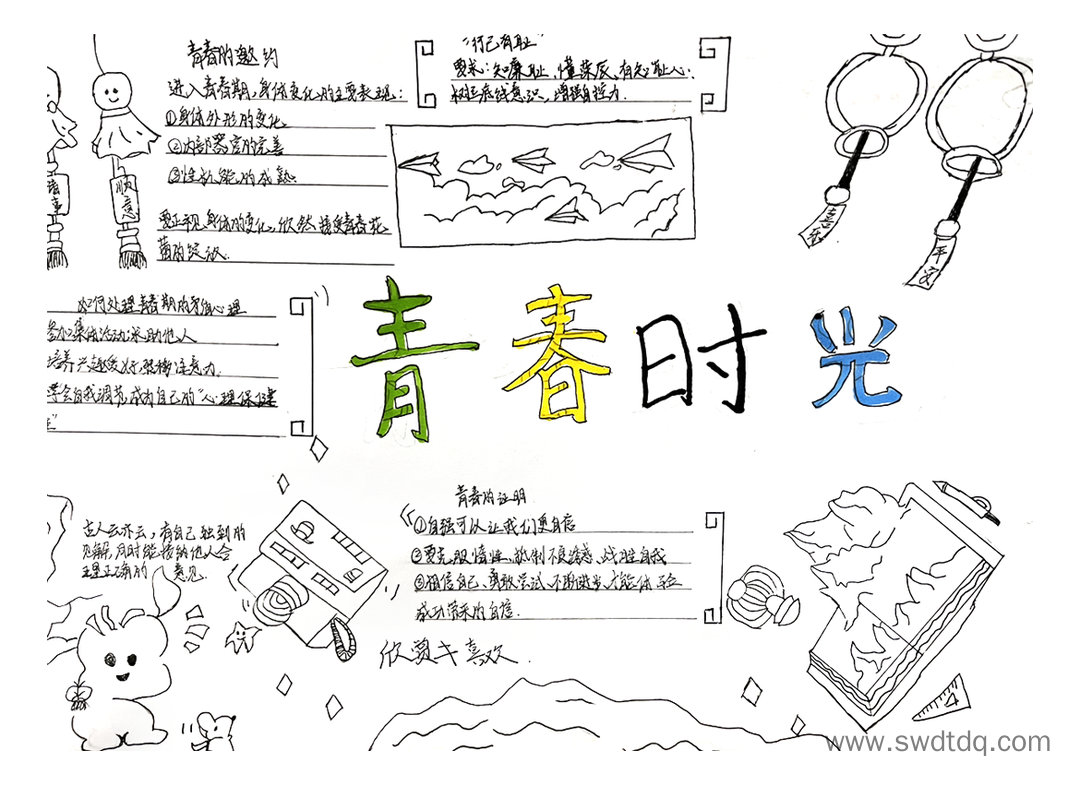 青春的邀约
进入青春期,身体变化的主要表现:
①身体外形的变化
②内部器官的完善
③性机能的成熟
要正视身体的变化,欣然接受青春花
蕾的绽放.
"行己有耻"
要求:知廉耻、懂荣辰、有知耻心.
树立底线意识,增强自控力.
事
顺
意
喜
乐
平
安
如何处理青春期的矛盾心理
参加集体活动求助他人
培养兴趣爱好转移注意力
学会自我调节,成为自己的"心理保健
青春时光
古人云亦云,有自己独到的
见解,同时能接纳他人合
理正确的意见.
青春的证明
①自强可以让我们更自信
②要克服惰性、抵制不良诱惑、战胜自我
③相信自己、勇敢尝试、不断进步,才能体验
成功带来的自信.
欣赏与喜欢.
4
www.swdtdq.com